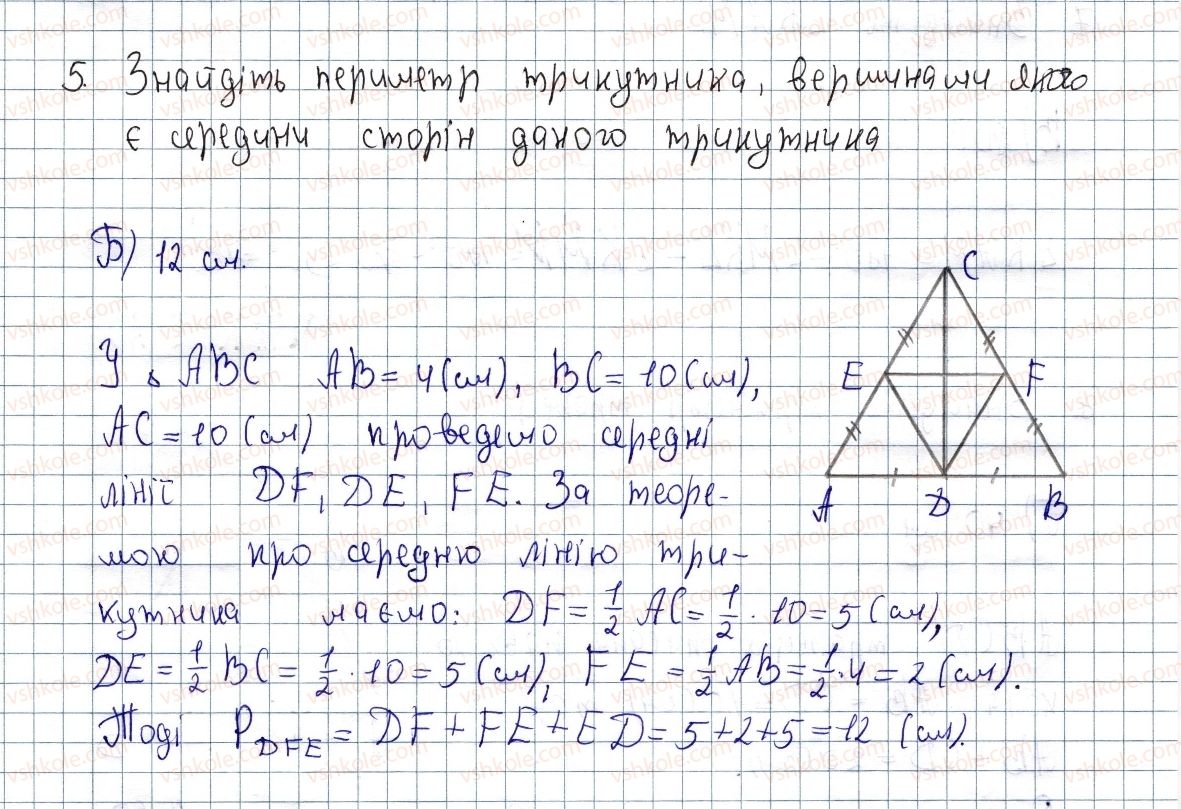 5. Знайдіть периметр трикутника, вершинами якого
є середини сторін даного трикутника
Б) 12 см.
У △ ABC AB = 4 (см), BC = 10 (см),
AC = 10 (см) проведемо середні
лінії DF, DE, FE. За теоре-
мою про середню лінію три-
кутника маємо: DF = 1/2 AC = 1/2 · 10 = 5 (см),
DE = 1/2 BC = 1/2 · 10 = 5 (см), FE = 1/2 AB = 1/2 · 4 = 2 (см).
Тоді P DFE = DF + FE + ED = 5 + 2 + 5 = 12 (см).
C
E F
A D B
vshkole.com